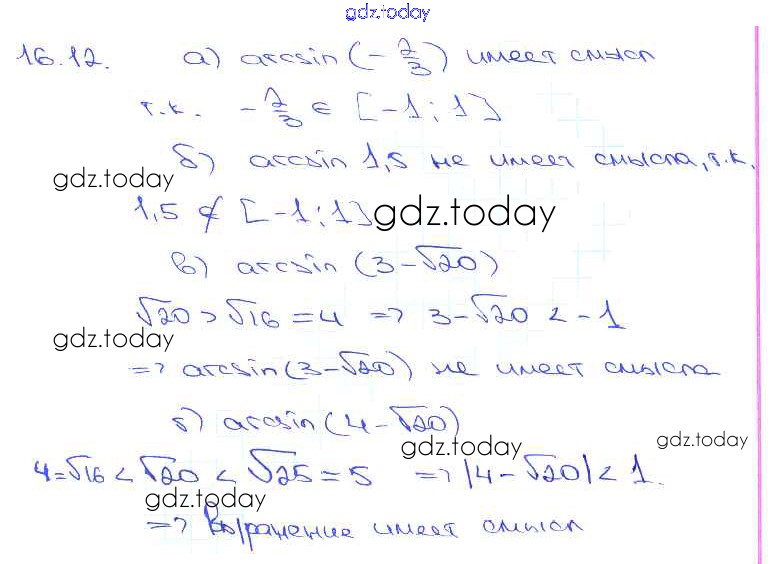 gdz.today
16.12. а) arcsin(-2/3) имеет смысл
т.к. -2/3 ∈ [-1; 1]
б) arcsin 1,5 не имеет смысла, т.к.
gdz.today
1,5 ∉ [-1; 1] gdz.today
в) arcsin (3-√20)
√20 > √16 = 4 => 3-√20 < -1
gdz.today
=> arcsin(3-√20) не имеет смысла
г) arcsin(4-√20)
gdz.today gdz.today
4=√16 < √20 < √25 = 5 => |4-√20| < 1.
gdz.today
=> Выражение имеет смысл